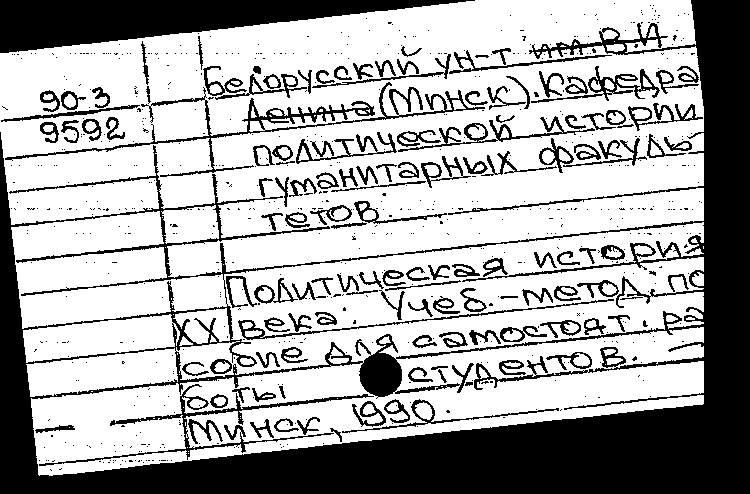 90-3
9592
Белорусский ун-т им. В.И.
Ленина (Минск). Кафедра
политической истории
гуманитарных факуль-
тетов.
Политическая история
XX века: Учеб.-метод. по
собие для самостоят. ра
боты студентов. —
Минск, 1990.